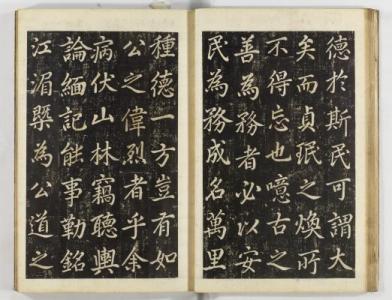 德於斯民可謂大
矣而貞珉之煥所
不得忘也噫古之
善為務者必以安
民為務成名萬里
種德一方豈有如
公之偉烈者乎余
病伏山林竊聽輿
論緬記能事勒銘
江湄槩為公道之